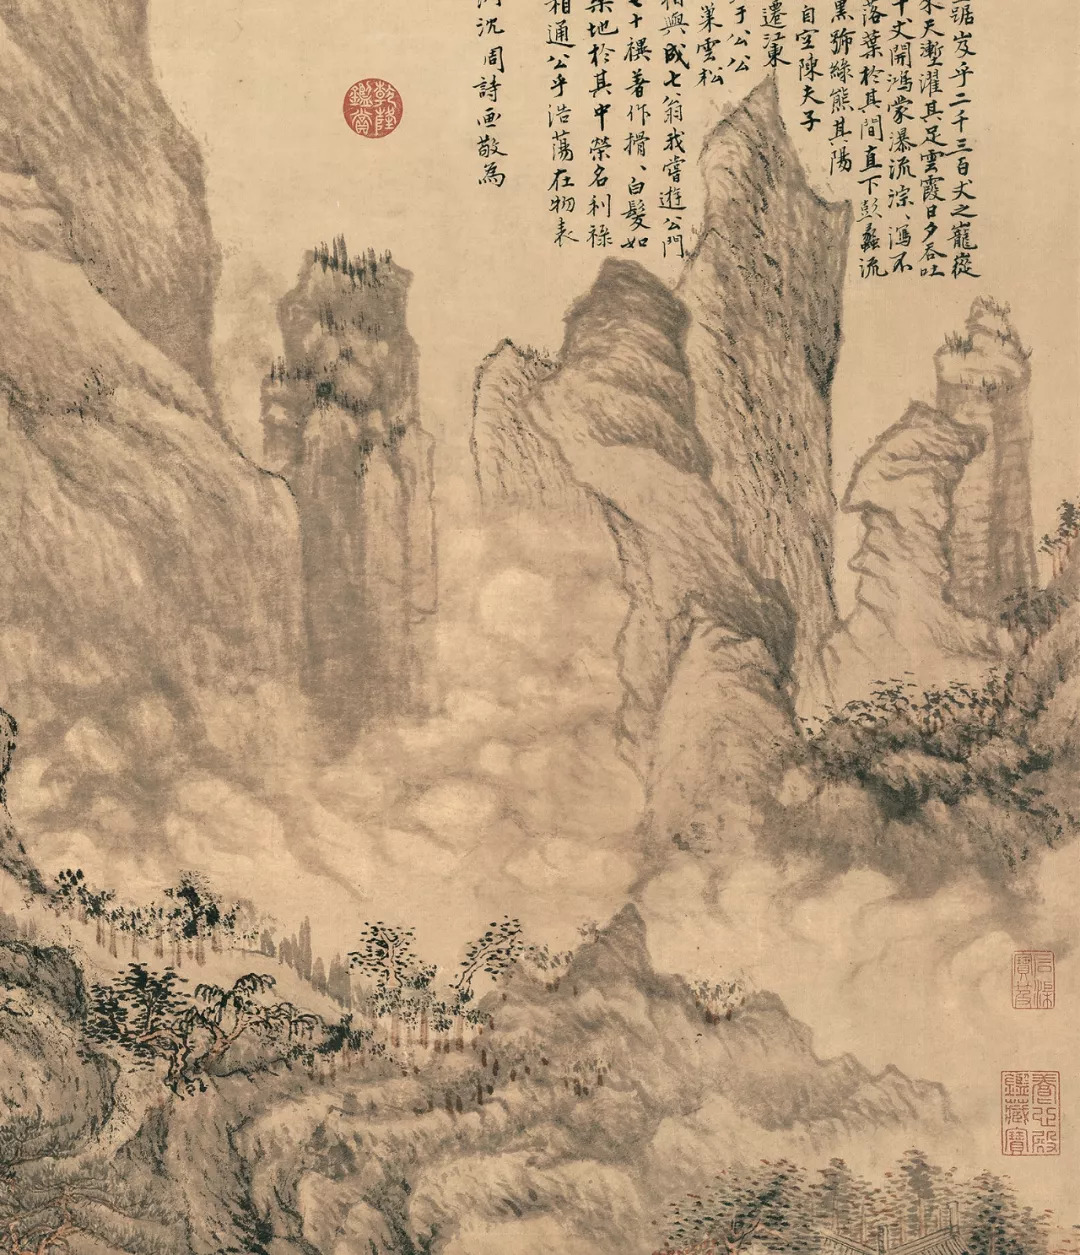 踞岌乎二千三百丈之巃嵸
來天塹濯其足雲霞日夕吞吐
丈開鴻蒙瀑流淙、瀉不
落葉於其間直下彭蠡流
黑號綠熊其陽
自空陳夫子
遷江東
于公公
巢雲松
相與成七翁我嘗遊公門
七十禩著作搰、白髮如
築地於其中榮名利祿
相通公乎浩蕩在物表
沈周詩画敬為
乾隆
鑑賞
石渠
寶笈
養心殿
鑑藏寶